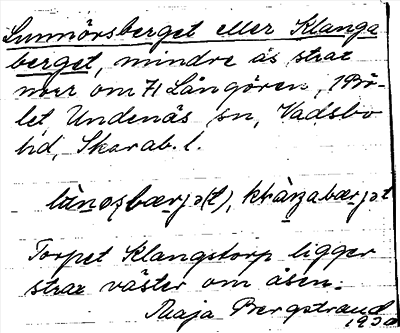 Sunnörsberget eller Klanga
berget, mindre ås strax
norr om 71 Långören, Brö-
let Undenäs sn, Vadsbo
hd, Skarab. l.
Torpet Klangstorp ligger
strax väster om åsen.
Maja Bergstrand